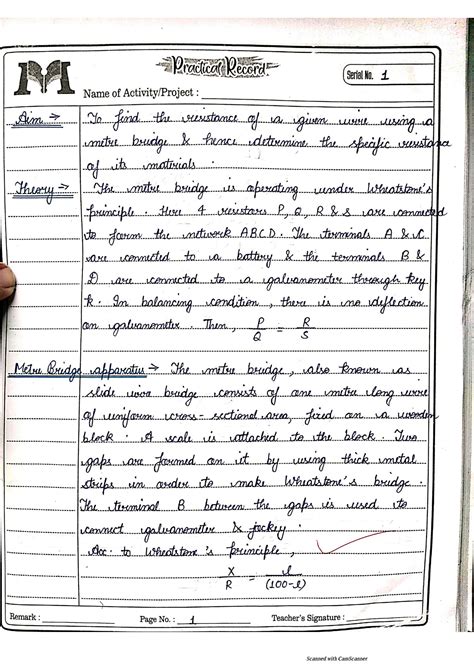 Practical Record
Serial No. 1
Name of Activity/Project :
Aim → To find the resistance of a given wire using a
metre bridge & hence determine the specific resistance
of its materials.
Theory → The metre bridge is operating under Wheatstone's
principle. Here 4 resistors P, Q, R & S are connected
to form the network ABCD. The terminals A & C
are connected to a battery & the terminals B &
D are connected to a galvanometer through key
K. In balancing condition, there is no deflection
on galvanometer. Then, P/Q = R/S
Metre Bridge apparatus → The metre bridge, also known as
slide wire bridge consists of one metre long wire
of uniform cross-sectional area, fixed on a wooden
block. A scale is attached to the block. Two
gaps are formed on it by using thick metal
strips in order to make Wheatstone's bridge.
The terminal B between the gaps is used to
connect galvanometer & jockey.
Acc. to Wheatstone's principle,
X/R = l/(100-l)
Remark : Page No. : 1 Teacher's Signature :
Scanned with CamScanner